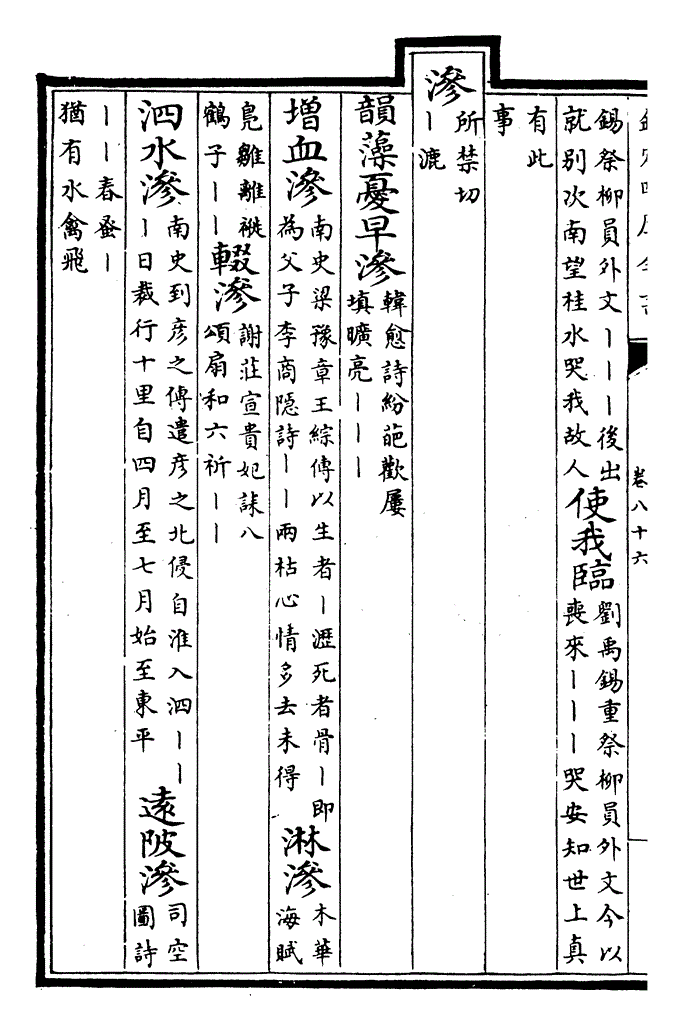 卷八十六
錫祭柳員外文丨丨丨後出
就别次南望桂水哭我故人
使我臨
劉禹錫重祭柳員外文今以
喪來丨丨丨哭安知世上真
有此
事
滲
所禁切
丨漉
韻藻憂早滲
韓愈詩紛葩歡屢
填曠亮丨丨丨
增血滲
南史梁豫章王綜傳以生者丨瀝死者骨丨即
為父子李商隱詩丨丨兩枯心情多去未得
淋滲
木華
海賦
鳧雛離褷
鶴子丨丨
輟滲
謝莊宣貴妃誄八
頌扃和六祈丨丨
泗水滲
南史到彦之傳遣彦之北侵自淮入泗丨丨
丨日裁行十里自四月至七月始至東平
遠陂滲
司空
圖詩
丨丨春蚤丨
猶有水禽飛